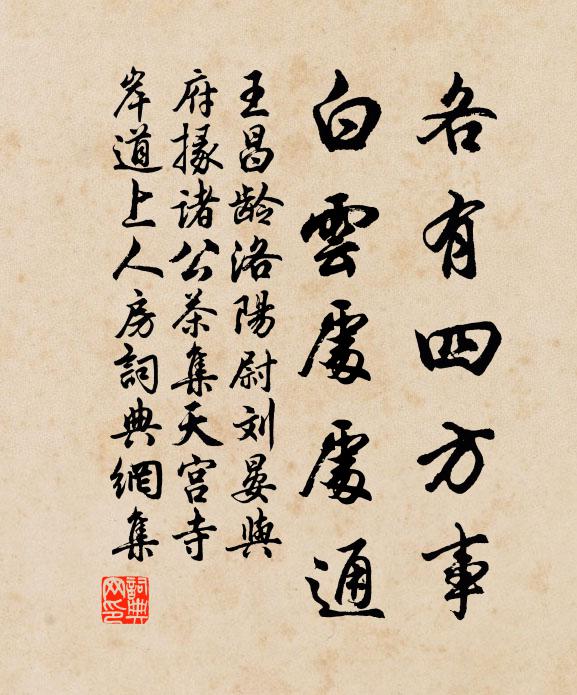 各有四方事
白雲處處通
王昌龄洛陽尉刘晏與
府掾諸公茶集天宫寺
岸道上人房詞典網集
詞典
网印